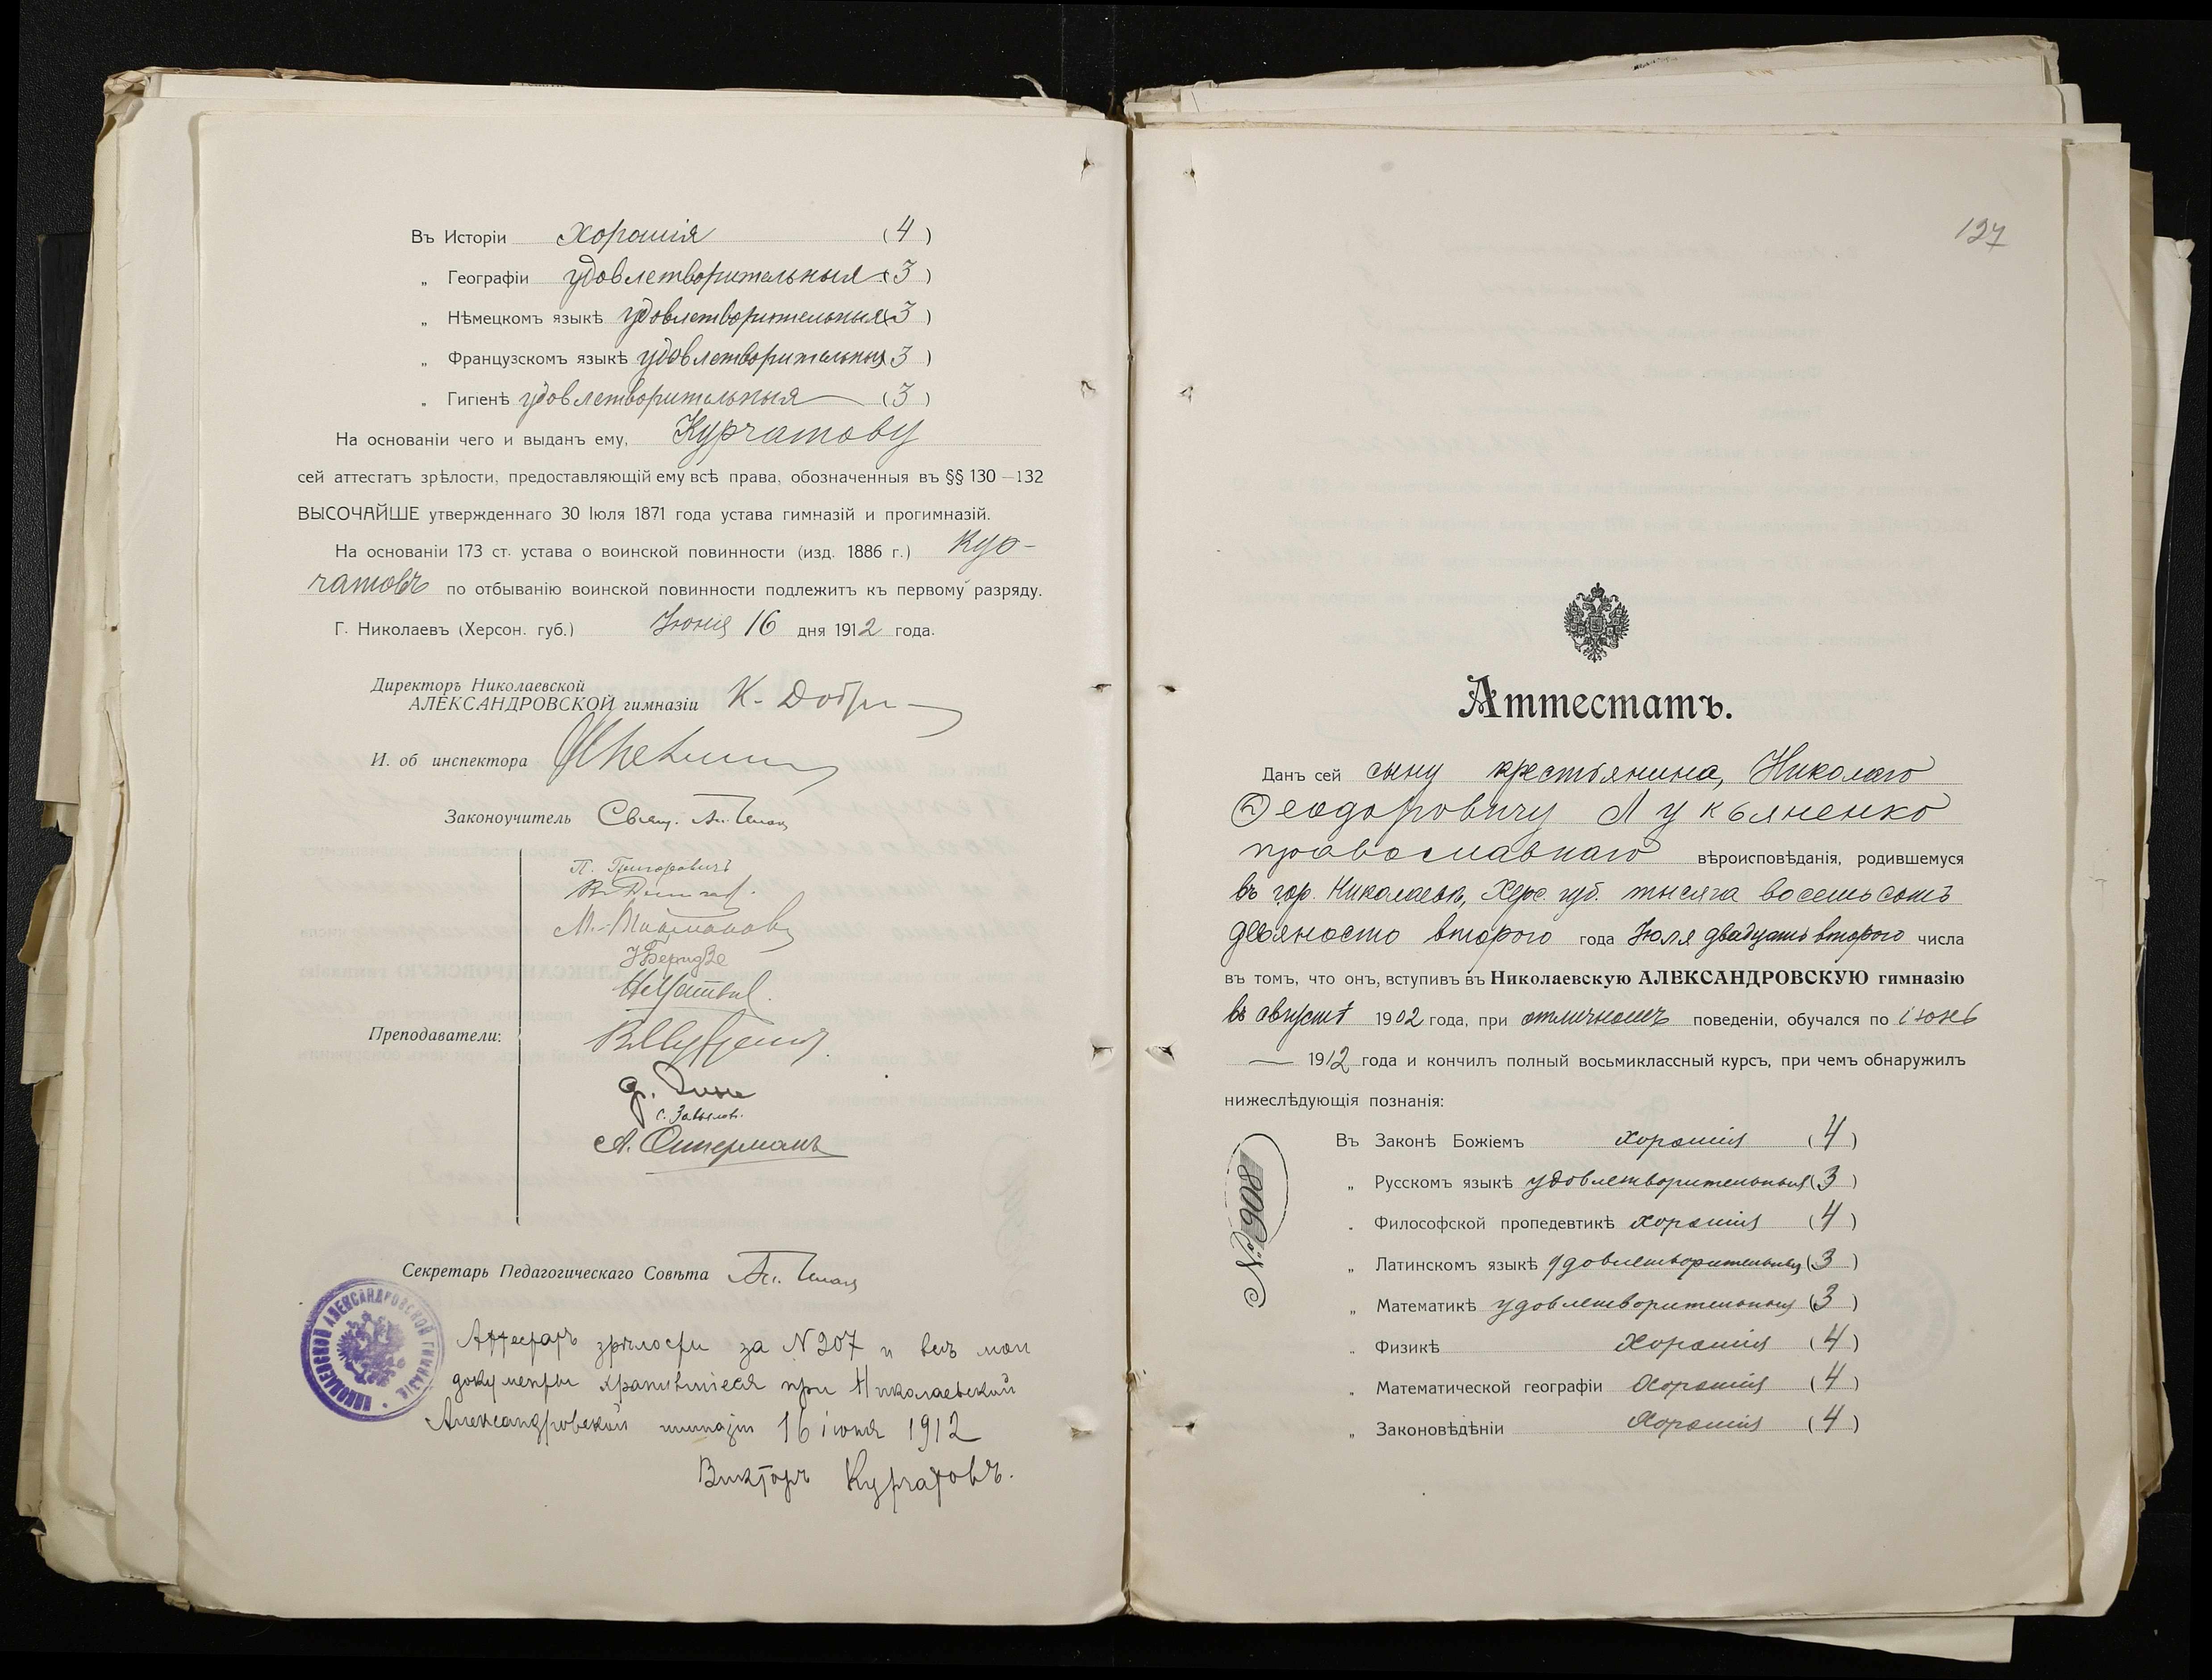 Въ Исторіи хорошія (4)
„ Географіи удовлетворительныя (3)
„ Нѣмецкомъ языкѣ удовлетворительныя (3)
„ Французскомъ языкѣ удовлетворительныя 3)
„ Гигіенѣ удовлетворительныя (3)
На основаніи чего и выданъ ему, Курчатову
сей аттестатъ зрѣлости, предоставляющій ему всѣ права, обозначенныя въ §§ 130—132
ВЫСОЧАЙШЕ утвержденнаго 30 Іюля 1871 года устава гимназій и прогимназій.
На основаніи 173 ст. устава о воинской повинности (изд. 1886 г.) Кур-
чатовъ по отбыванію воинской повинности подлежитъ къ первому разряду.
Г. Николаевъ (Херсон. губ.) Іюня 16 дня 1912 года.
Директоръ Николаевской
АЛЕКСАНДРОВСКОЙ гимназіи К.
И. об инспектора
Законоучитель Свящ.
П. Григоровичъ
Преподаватели:
А. Оттерманъ
Секретарь Педагогическаго Совѣта
НИКОЛАЕВСКОЙ АЛЕКСАНДРОВСКОЙ ГИМНАЗІИ
Аттестатъ зрѣлости за N 907 и всѣ мои
документы хранившіеся при Николаевской
Александровской гимназіи 16 іюня 1912
Викторъ Курчатовъ.
127
Аттестатъ.
Данъ сей сыну крестьянина, Николаю
Ѳеодоровичу Лукьяненко
православнаго вѣроисповѣданія, родившемуся
въ гор. Николаевѣ, Херс. губ. тысяча восемьсотъ
девяносто второго года Іюля двадцать второго числа
въ томъ, что онъ, вступивъ въ Николаевскую АЛЕКСАНДРОВСКУЮ гимназію
въ августѣ 1902 года, при отличномъ поведеніи, обучался по іюнь
— 1912 года и кончилъ полный восьмиклассный курсъ, при чемъ обнаружилъ
нижеслѣдующія познанія:
№ 908
Въ Законѣ Божіемъ хорошія (4)
„ Русскомъ языкѣ удовлетворительныя (3)
„ Философской пропедевтикѣ хорошія (4)
„ Латинскомъ языкѣ удовлетворительныя (3)
„ Математикѣ удовлетворительныя (3)
„ Физикѣ хорошія (4)
„ Математической географіи хорошія (4)
„ Законовѣдѣніи хорошія (4)